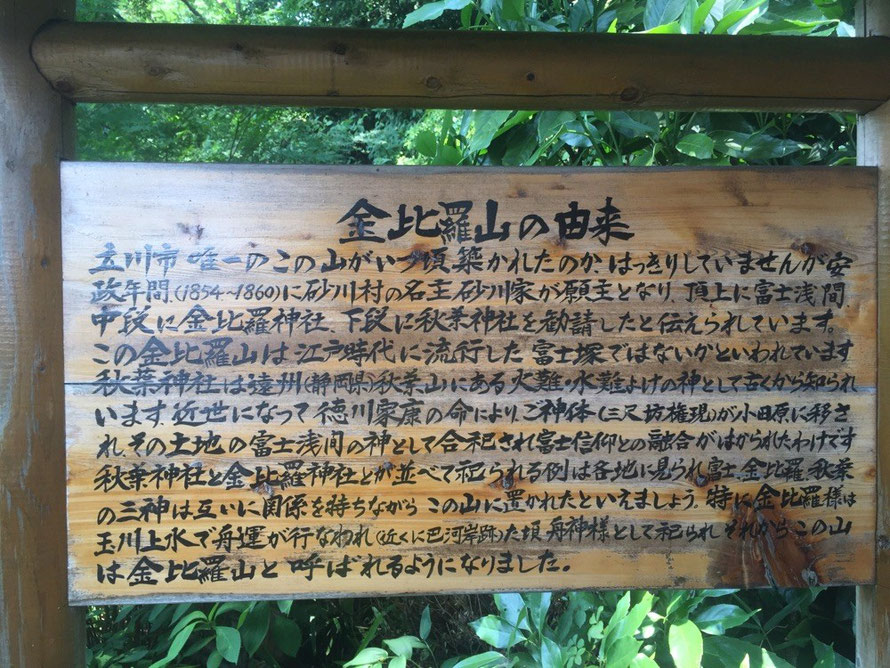 金比羅山の由来
立川市唯一のこの山がいつ頃築かれたのか、はっきりしていませんが安
政年間(1854~1860)に砂川村の名主砂川家が願主となり、頂上に富士浅間、
中段に金比羅神社、下段に秋葉神社を勧請したと伝えられています。
この金比羅山は江戸時代に流行した富士塚ではないかといわれています
秋葉神社は遠州(静岡県)秋葉山にある火難・水難よけの神として古くから知られ
います。近世になって徳川家康の命により、ご神体(三尺坊権現)が小田原に移さ
れ、その土地の富士浅間の神として合祀され富士信仰との融合がはかられたわけです
秋葉神社と金比羅神社とが並べて祀られる例は各地に見られ富士、金比羅、秋葉
の三神は互いに関係を持ちながらこの山に置かれたといえましょう。特に金比羅様は
玉川上水で舟運が行なわれ(近くに巴河岸跡)た頃舟神様として祀られそれからこの山
は金比羅山と呼ばれるようになりました。